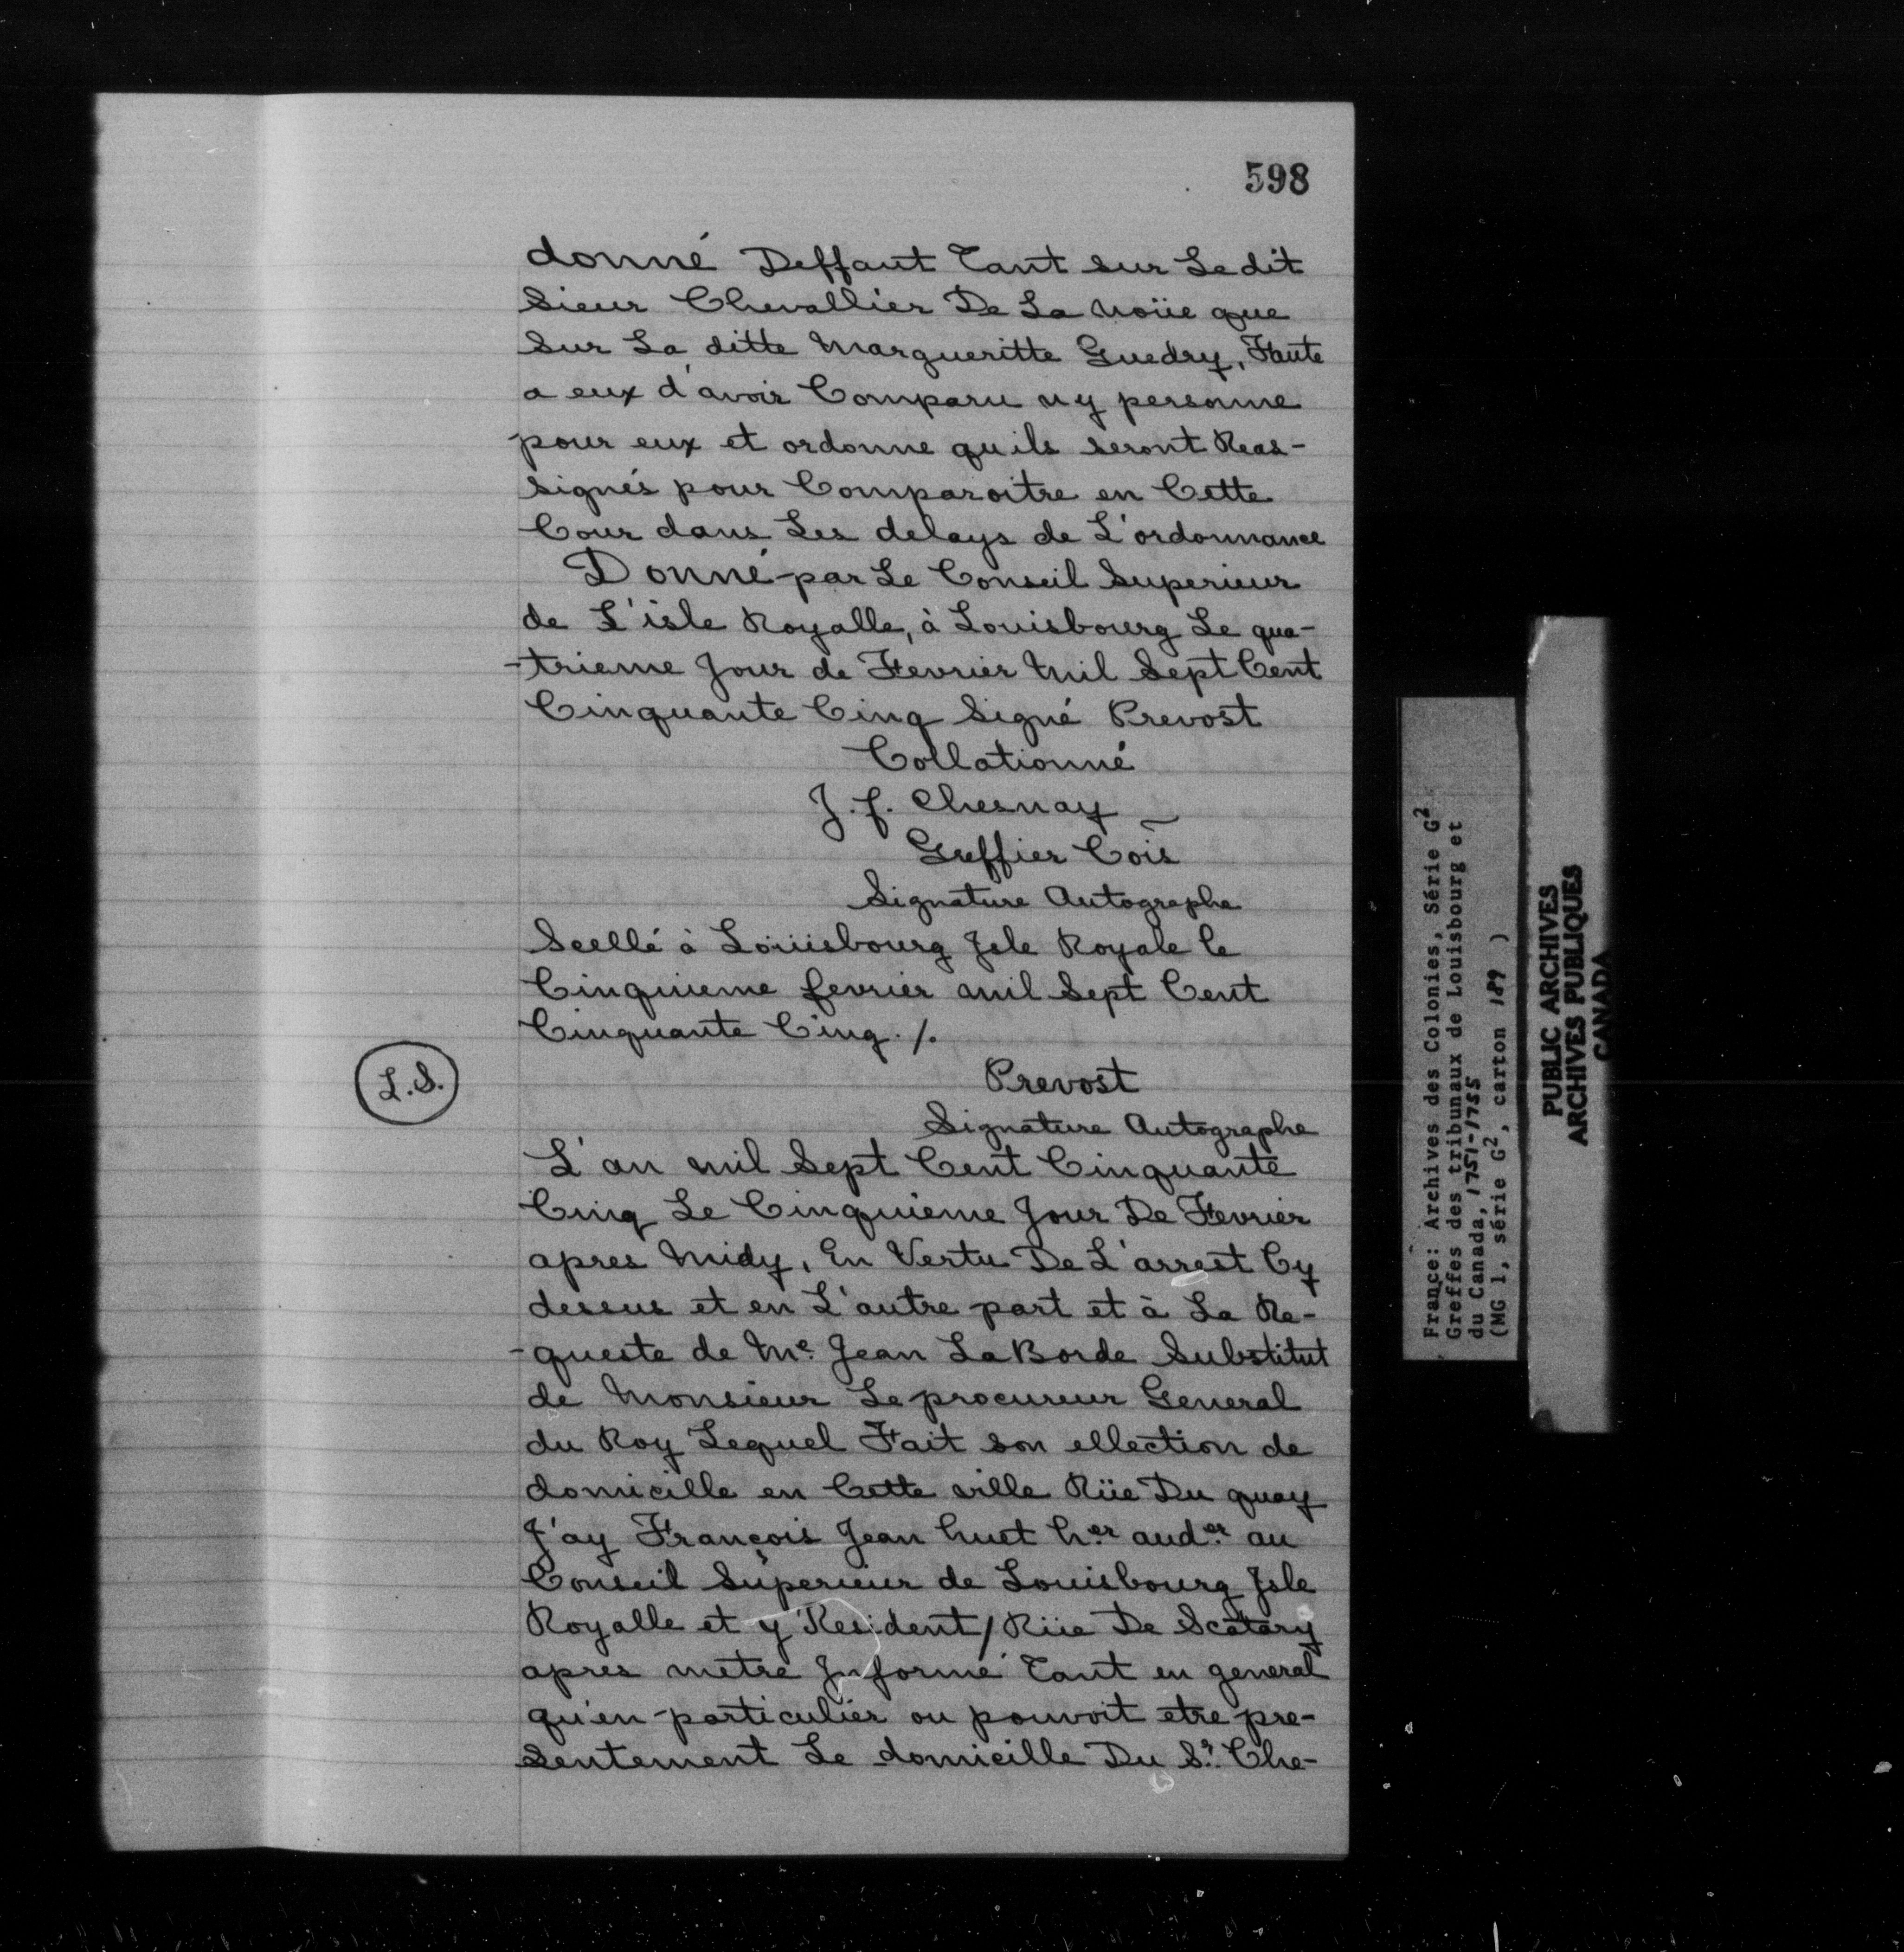 598
donné Deffaut Tant sur Ledit
Sieur Chevallier De La Noüe que
Sur La ditte Margueritte Guedry, Faute
a eux d'avoir Comparu ny personne
pour eux et ordonne quils seront Reas-
signés pour Comparoitre en Cette
Cour dans Les delays de L'ordonnance
Donné par Le Conseil Superieur
de L'isle Royalle, à Louisbourg Le qua-
-trieme Jour de Fevrier Mil Sept Cent
Cinquante Cinq Signé Prevost
Collationné
J. f. Chesnay
Greffier Cois
Signature Autographe
Scellé à Loüisbourg Jsle Royale le
Cinquieme fevrier mil Sept Cent
Cinquante Cinq ./.
L.S.
Prevost
Signature Autographe
L'an mil Sept Cent Cinquante
Cinq Le Cinquieme Jour De Fevrier
apres Midy, En Vertu De L'arrest Cy
dessus et en L'autre part et à La Re-
-queste de Me. Jean LaBorde Substitut
de Monsieur Le procureur General
du Roy Lequel Fait son ellection de
domicille en Cette ville Rüe Du quay
J'ay François Jean huet h.er aud.er au
Conseil Superieur de Louisbourg Jsle
Royalle et y Resident / Rüe De Scatary
apres metre Jnformé Tant en general
qu'en particulier ou pouvoit etre pre-
sentement Le domicille Du Sr. Che-
France: Archives des Colonies, Série G2
Greffes des tribunaux de Louisbourg et
du Canada, 1751-1755
(MG 1, série G2, carton 189 )
PUBLIC ARCHIVES
ARCHIVES PUBLIQUES
CANADA